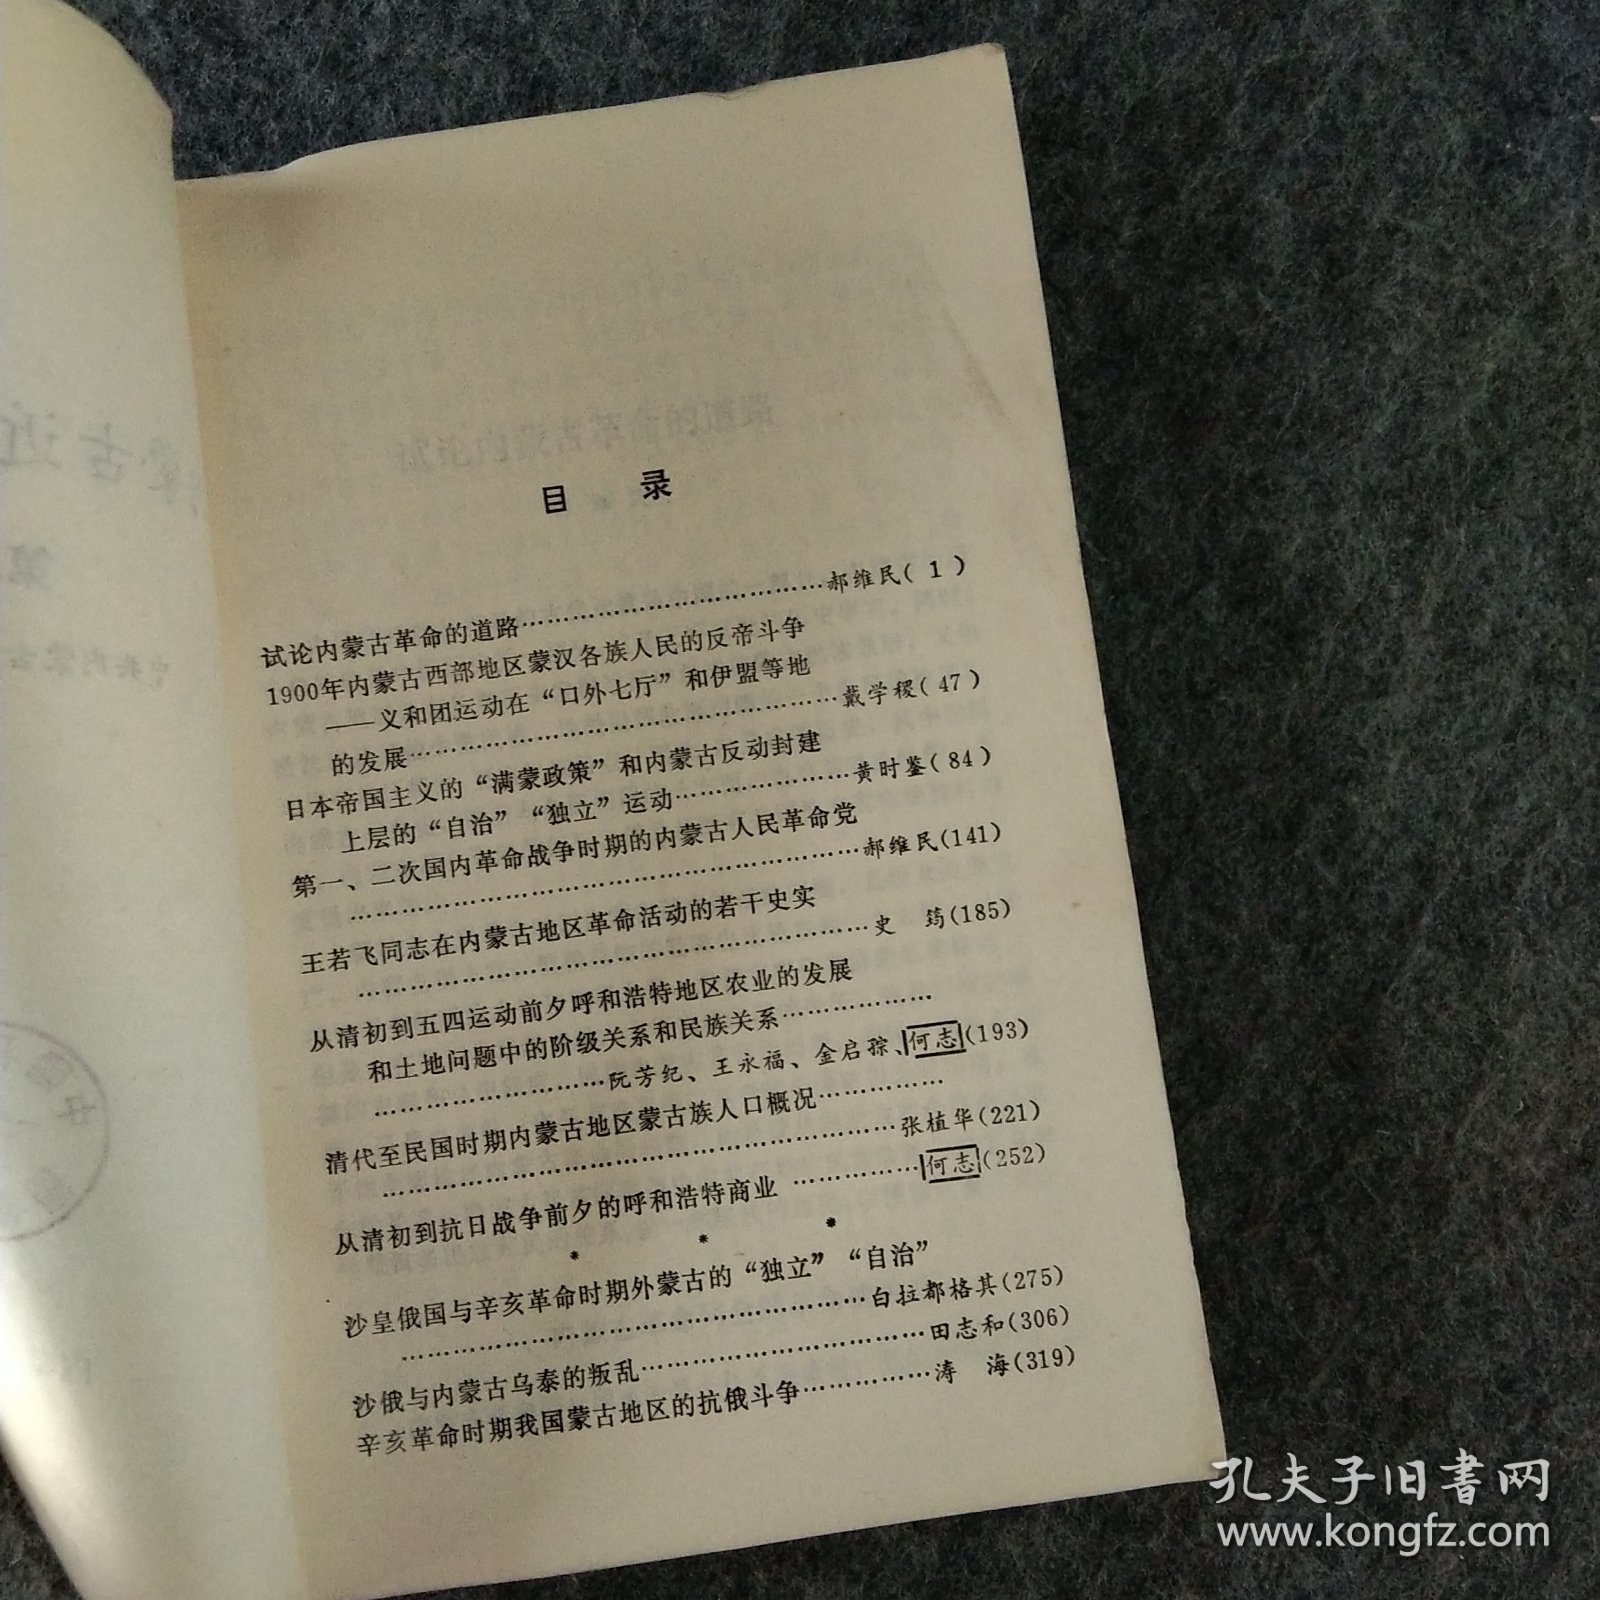 目 录
试论内蒙古革命的道路……………………………郝维民( 1 )
1900年内蒙古西部地区蒙汉各族人民的反帝斗争
——义和团运动在“口外七厅”和伊盟等地
的发展……………………………………………戴学稷( 47 )
日本帝国主义的“满蒙政策”和内蒙古反动封建
上层的“自治”“独立”运动…………………黄时鉴( 84 )
第一、二次国内革命战争时期的内蒙古人民革命党
……………………………………………………郝维民(141)
王若飞同志在内蒙古地区革命活动的若干史实
……………………………………………………史 筠(185)
从清初到五四运动前夕呼和浩特地区农业的发展
和土地问题中的阶级关系和民族关系………………
………………………阮芳纪、王永福、金启孮、何志(193)
清代至民国时期内蒙古地区蒙古族人口概况……………
……………………………………………………张植华(221)
从清初到抗日战争前夕的呼和浩特商业 ……………何志(252)
* * *
沙皇俄国与辛亥革命时期外蒙古的“独立”“自治”
………………………………………………白拉都格其(275)
沙俄与内蒙古乌泰的叛乱……………………………田志和(306)
辛亥革命时期我国蒙古地区的抗俄斗争……………涛 海(319)
蒙古近
第
孔夫子旧书网
www.kongfz.com